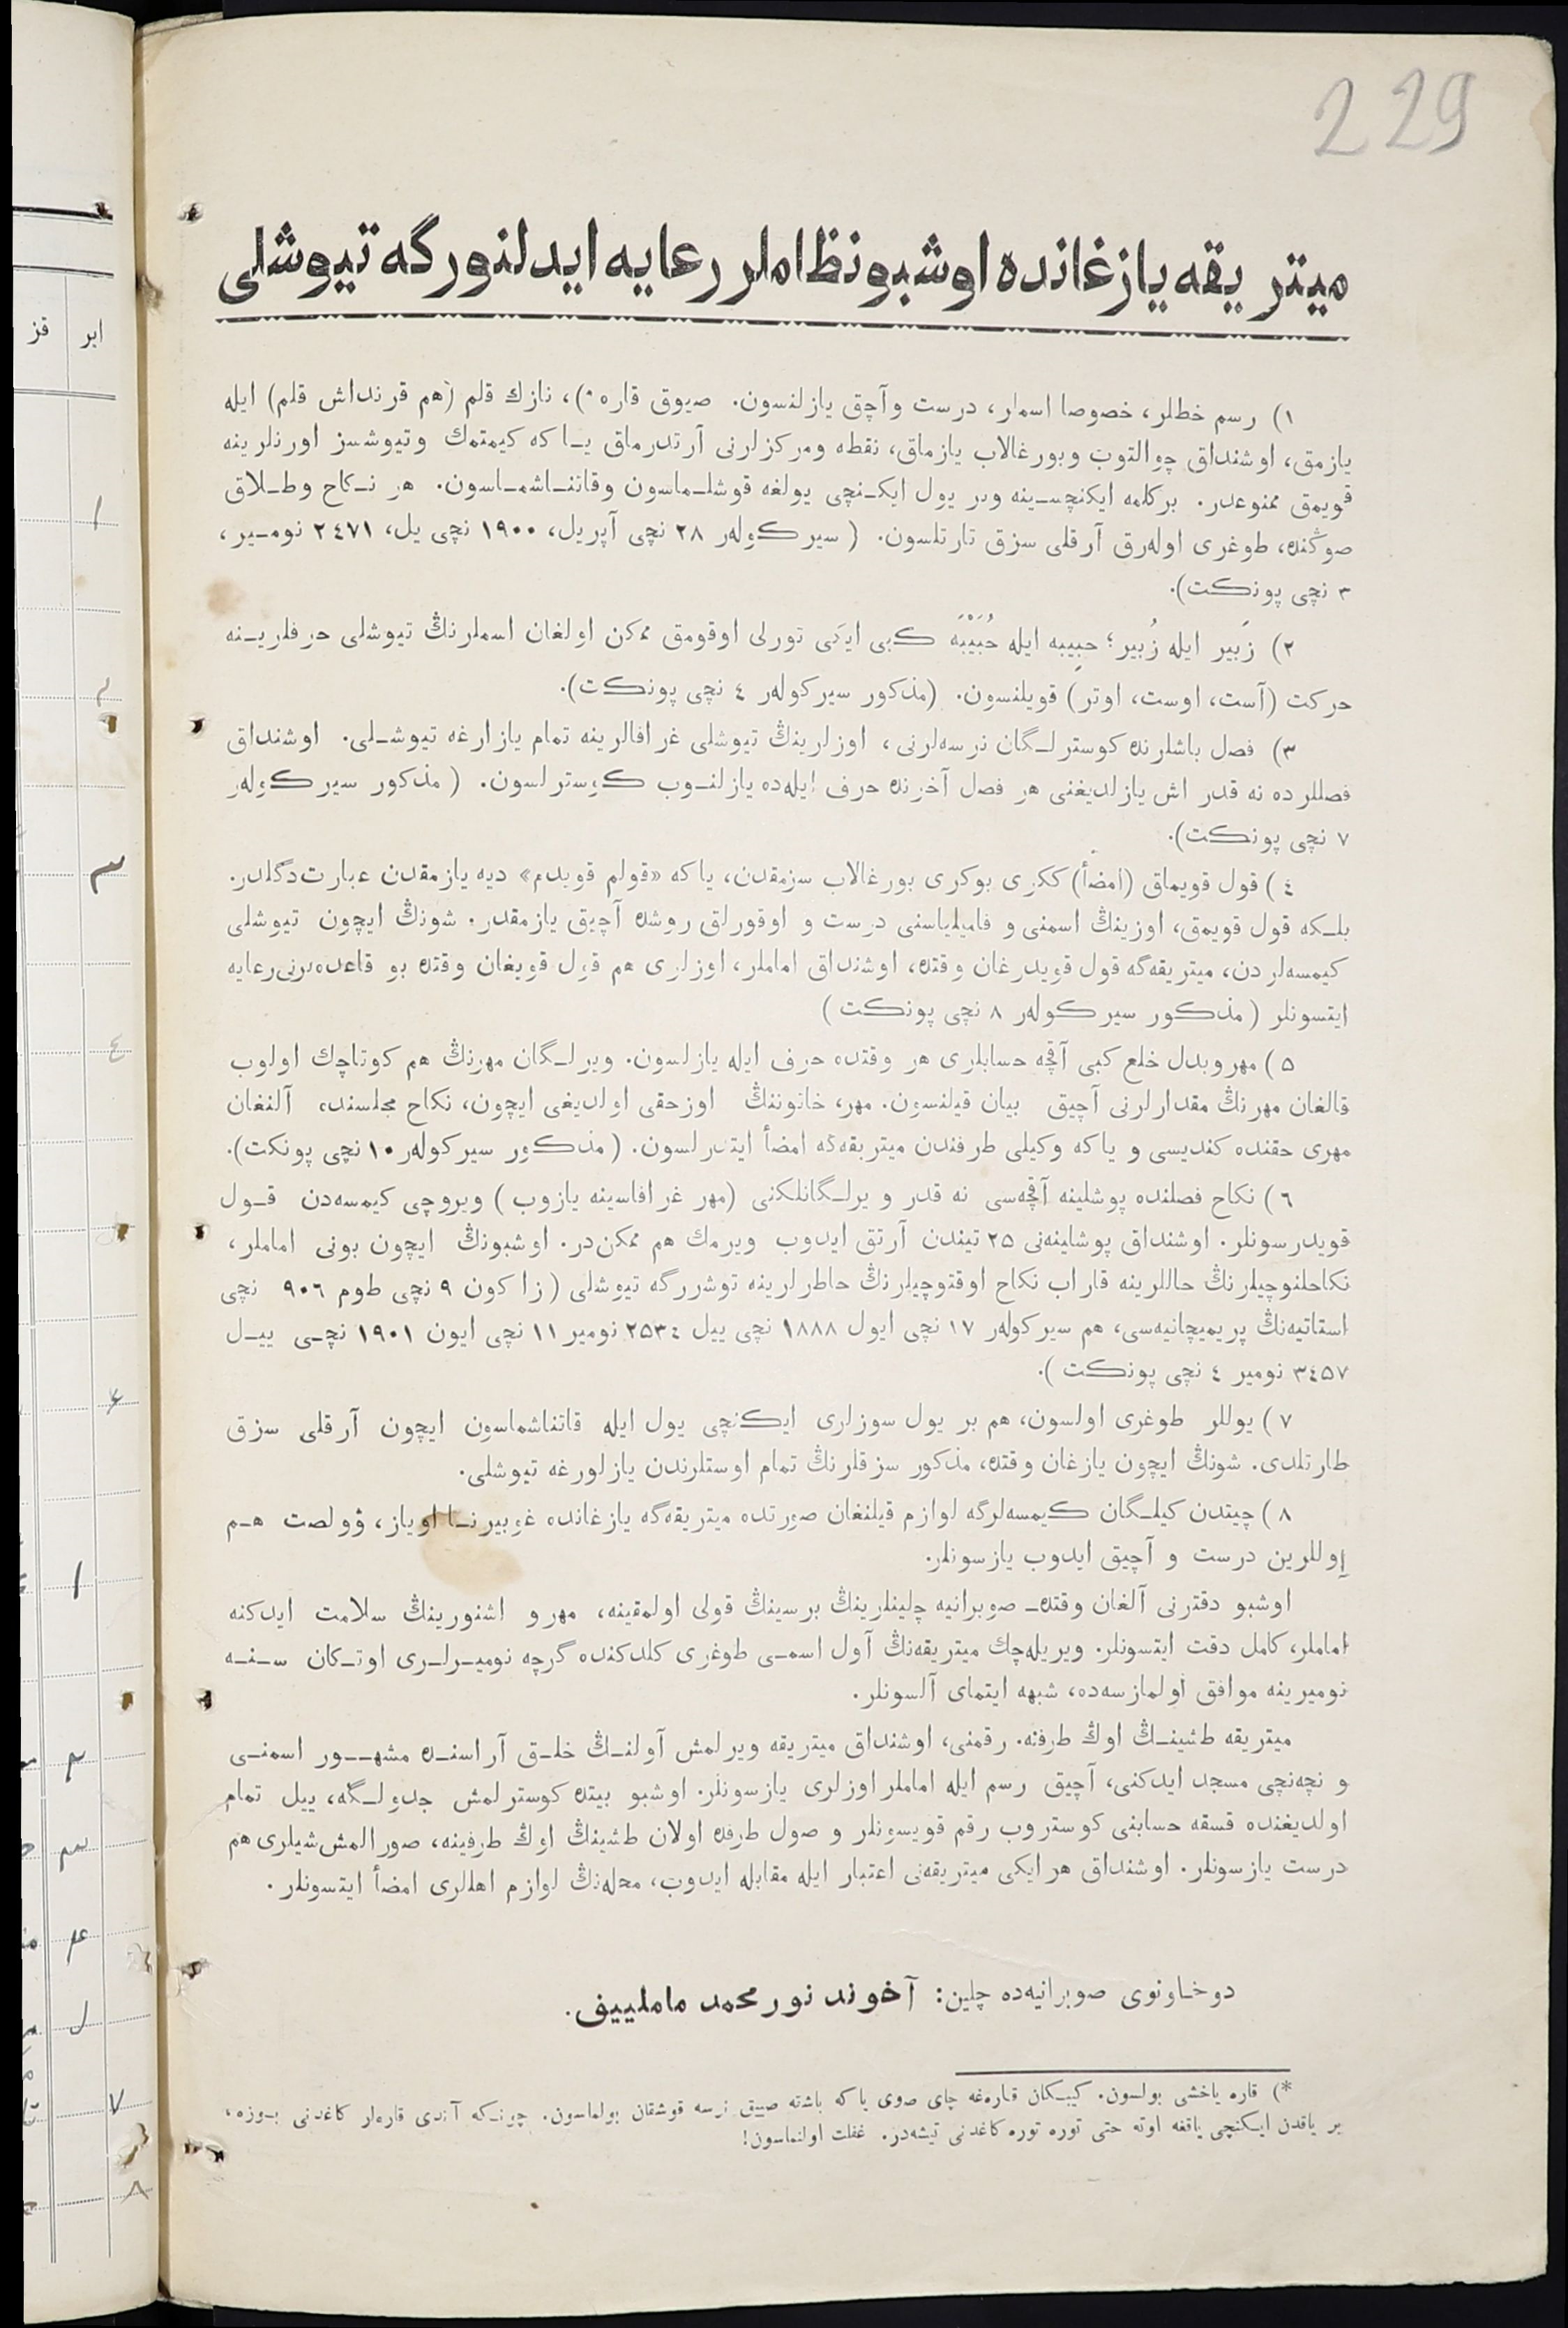 229
میتریقه یازغانده اوشبو نظاملر رعایه ایدلنورگه تیوشلی
ابر
قز
١) رسم خطلر، خصوصا اسملر، درست وآچق یازلنسون. صیوق قاره *)، نازك قلم (هم قرنداش قلم) ایله
یازمق، اوشنداق چوالتوب وبورغالاب یازماق، نقطه ومرکزلرنی آرتدرماق یـا که کیمتمك وتیوشسز اورنلرینه
قویمق ممنوعدر. برکلمه ایکنچسـینه وبر یول ایکـنچی یولغه قوشلـماسون وقاتنـاشمـاسون. هر نـکاح وطـلاق
صوڭنده، طوغری اولەرق آرقلی سزق تارتلسون. (سیرکولەر ٢٨ نچی آپریل، ١٩٠٠ نچی یل، ٢٤٧١ نومـیر،
٣ نچی پونکت).
٢) زَبیر ایله زُبیر؛ حبِیبه ایله حُبَیْبَه کبی ایکی تورلی اوقومق ممکن اولغان اسملرنڭ تیوشلی حرفلریـنه
حرکت (آست، اوست، اوتر) قویلنسون. (مذکور سیرکولەر ٤ نچی پونکت).
٣) فصل باشلرنده کوسترلـگان نرسەلرنی، اوزلرینڭ تیوشلی غرافالرینه تمام یازارغه تیوشـلی. اوشنداق
فصللرده نه قدر اش یازلدیغنی هر فصل آخرنده حرف ایلەده یازلنـوب کوسترلسون. (مذکور سیرکولەر
٧ نچی پونکت).
٤) قول قویماق (امضأ) ککری بوکری بورغالاب سزمقدن، یاکه «قولم قویدم» دیه یازمقدن عبارت دگلدر.
بلـکه قول قویمق، اوزینڭ اسمنی و فامیلیاسنی درست و اوقورلق روشده آچیق یازمقدر. شونڭ ایچون تیوشلی
کیمسەلردن، میتریقەگه قول قویدرغان وقتده، اوشنداق اماملر، اوزلری هم قول قویغان وقتده بو قاعدەلرنی رعایه
ایتسونلر (مذکور سیرکولەر ٨ نچی پونکت)
٥) مهر وبدل خلع کبی آقچه حسابلری هر وقتده حرف ایله یازلسون. ویرلـگان مهرنڭ هم کوتاچك اولوب
قالغان مهرنڭ مقدارلرنی آچیق بیان قیلنسون. مهر، خاتوننڭ اوزحقی اولدیغی ایچون، نکاح مجلسنده آلنغان
مهری حقنده کندیسی و یاکه وکیلی طرفندن میتریقەگه امضأ ایتدرلسون. (مذکور سیرکولەر ١٠ نچی پونکت).
٦) نکاح فصلنده پوشلینه آقچەسی نه قدر ویرلـگانلکنی (مهر غرافاسینه یازوب) ویروچی کیمسەدن قـول
قویدرسونلر. اوشنداق پوشلینەنی ٢٥ تیندن آرتق ایدوب ویرمك هم ممکن‌در. اوشبونڭ ایچون بونی اماملر،
نکاحلنوچیلرنڭ حاللرینه قاراب نکاح اوقتوچیلرنڭ خاطرلرینه توشررگه تیوشلی (زاکون ٩ نچی طوم ٩٠٦ نچی
استاتیەنڭ پریمیچانیەسی، هم سیرکولەر ١٧ نچی ایول ١٨٨٨ نچی ییل ٢٥٣٤ نومیر ١١ نچی ایون ١٩٠١ نچـی ییـل
٣٤٥٧ نومیر ٤ نچی پونکت).
٧) یوللر طوغری اولسون، هم بر یول سوزلری ایکنچی یول ایله قاتناشماسون ایچون آرقلی سزق
طارتلدی. شونڭ ایچون یازغان وقتده، مذکور سزقلرنڭ تمام اوستلرندن یازلورغه تیوشلی.
٨) چیتدن کیلـگان کیمسەلرگه لوازم قیلنغان صورتده میتریقەگه یازغانده غوبیرنـا اویاز، ڤولصت هـم
اوللرین درست و آچیق ایدوب یازسونلر.
اوشبو دفترنی آلغان وقتده صوبرانیه چلینلرینڭ برسینڭ قولی اولمقینه، مهر و اشنورینڭ سلامت ایدکنه
اماملر، کامل دقت ایتسونلر. ویریلەچك میتریقەنڭ آول اسمـی طوغری کلدکنده گرچه نومیـرلـری اوتـکان سـنـه
نومیرینه موافق اولمازسەده، شبهه ایتمای آلسونلر.
میتریقه طشینـڭ اوڭ طرفنه. رقمنی، اوشنداق میتریقه ویرلمش آولنـڭ خلـق آراسنـده مشهــور اسمنـی
و نچەنچی مسجد ایدکنی، آچیق رسم ایله اماملر اوزلری یازسونلر. اوشبو بیتده کوسترلمش جدولـگه، ییل تمام
اولدیغنده قسقه حسابنی کوستروب رقم قویسونلر و صول طرفده اولان طشینڭ اوڭ طرفینه، صورالمش شیلری هم
درست یازسونلر. اوشنداق هر ایکی میتریقەنی اعتبار ایله مقابله ایدوب، محلەنڭ لوازم اهللری امضأ ایتسونلر.
دوخاونوی صوبرانیەده چلین: آخوند نورمحمد ماملییف.
*) قاره یاخشی بولسون. کیبـکان قارەغه چای صوی یاکه باشته صییق نرسه قوشقان بولماسون. چونـکه آندی قارەلر کاغدنی بـوزه،
بر یاقدن ایکنچی یاقغه اوته حتی توره توره کاغدنی تیشەدر. غفلت اولنماسون!